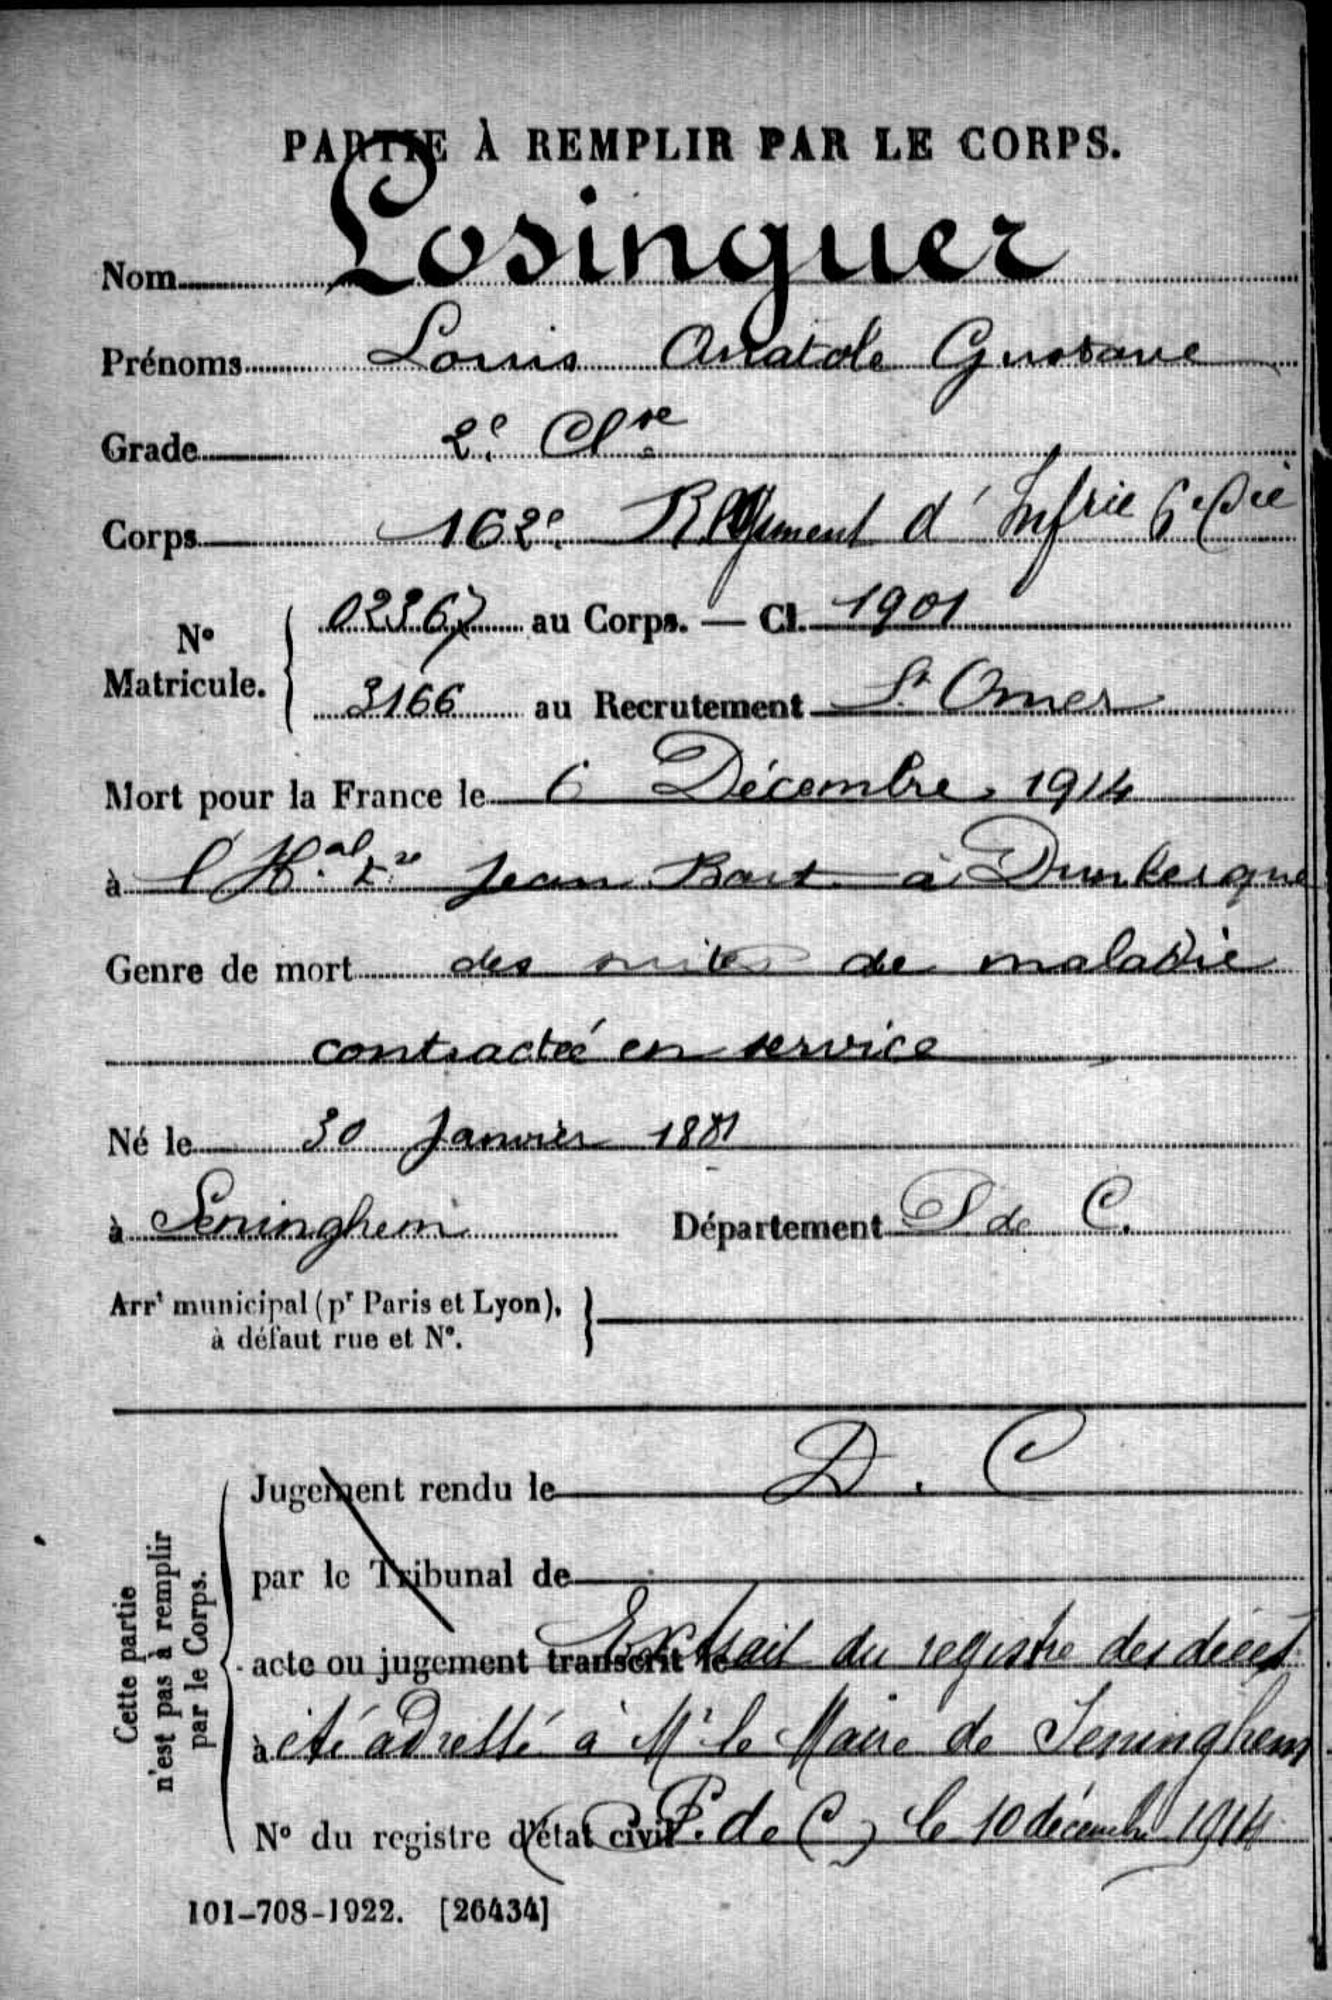 PARTIE À REMPLIR PAR LE CORPS.
Nom Losinguer
Prénoms Louis Anatole Gustave
Grade 2e Clse
Corps 162e Régiment d'Infrie 6e Cie
No Matricule. 02367 au Corps. — Cl. 1901
3166 au Recrutement St Omer
Mort pour la France le 6 Décembre 1914
à l'Hal Jean Bart à Dunkerque
Genre de mort des suites de maladie
contractée en service
Né le 30 Janvier 1881
à Seninghem Département P de C.
Arrt municipal (pr Paris et Lyon),
à défaut rue et No.
Cette partie
n'est pas à remplir
par le Corps.
Jugement rendu le D. C
par le Tribunal de
acte ou jugement transcrit le Extrait du registre des décès
à été adressé à Mr le Maire de Seninghem
No du registre d'état civil (P. de C) le 10 décembre 1914
101-708-1922. [26434]